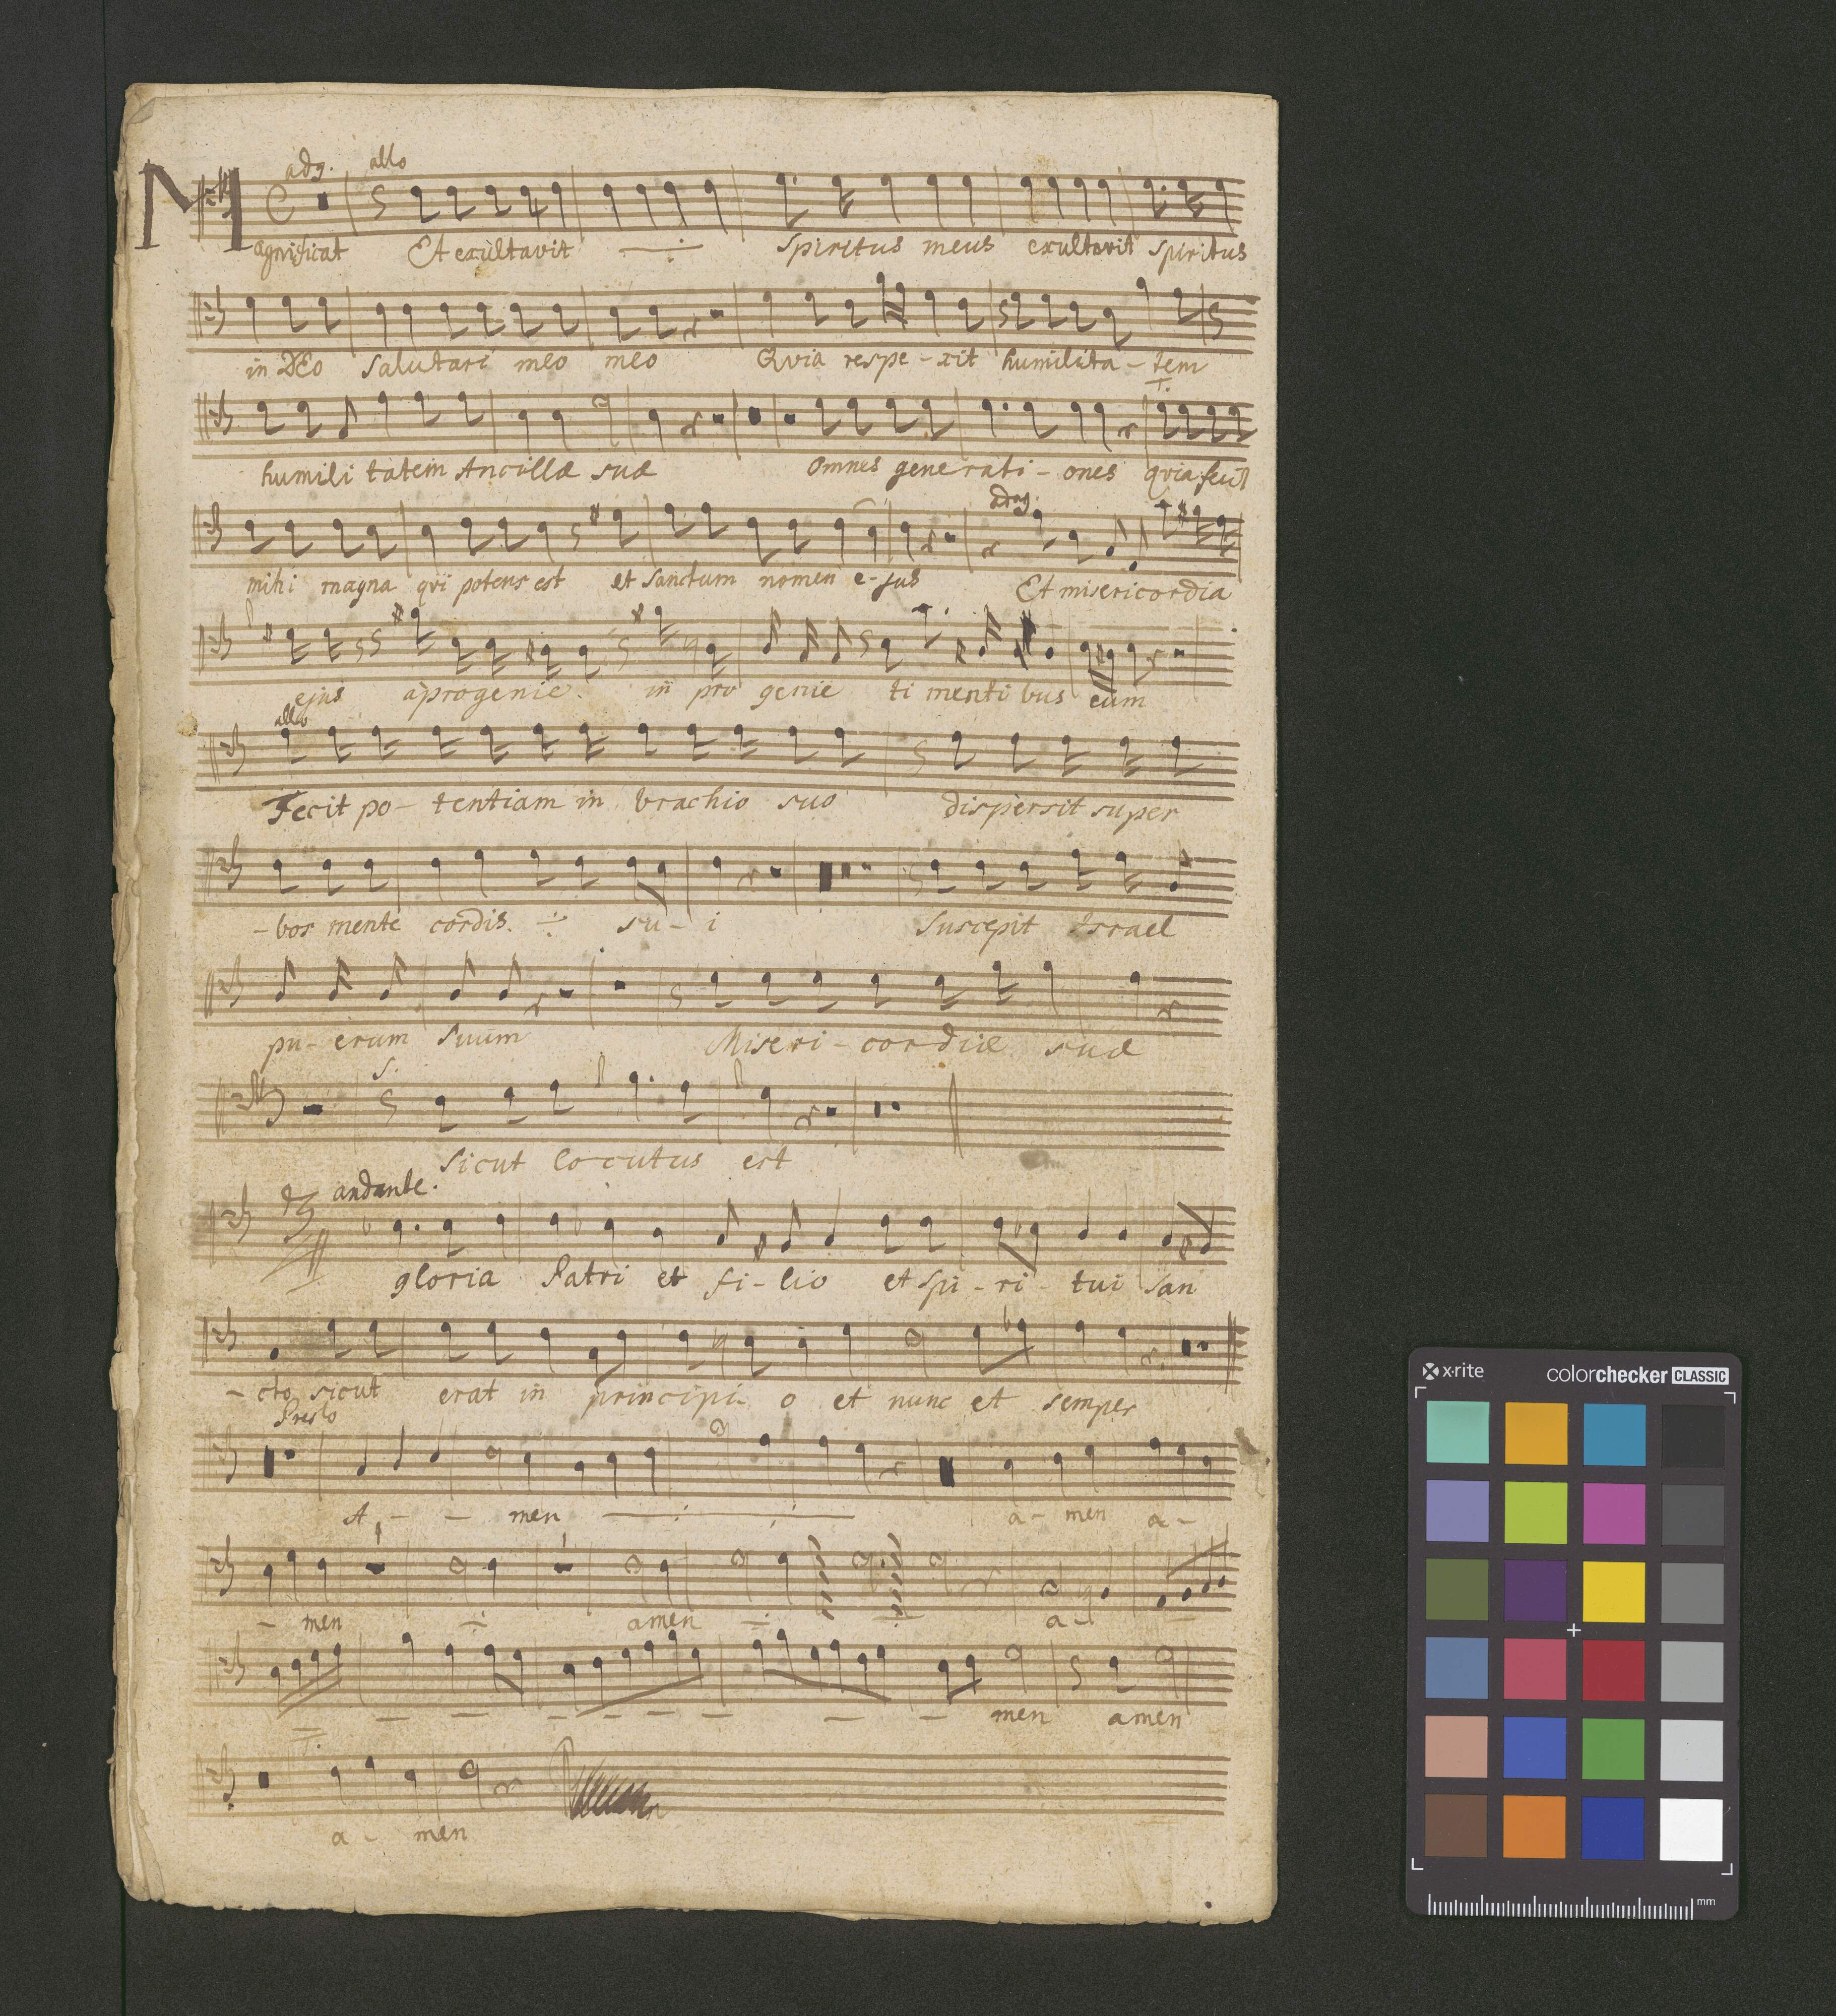 adg. allo
Magnificat Et exultavit spiritus meus exultavit spiritus
in DEo salutari meo meo Qvia respe-xit humilita-tem
T.
humili tatem Ancillæ suæ omnes generati-ones qvia fecit
adag.
mihi magna qvi potens est et sanctum nomen e-jus Et misericordia
ejus àprogenie. in pro genie ti menti bus eum
allo
Fecit po-tentiam in brachio suo dispersit super
-bos mente cordis. su-i Suscepit Israel
pu-erum suum Miseri-cordiæ suæ
S.
sicut locutus est
andante.
gloria Patri et fi-lio et spi-ri-tui san
-cto sicut erat in principi-o et nunc et semper
Presto
A - - men a-men a-
- men amen a-
men amen
T.
a- men
x-rite colorchecker CLASSIC
mm